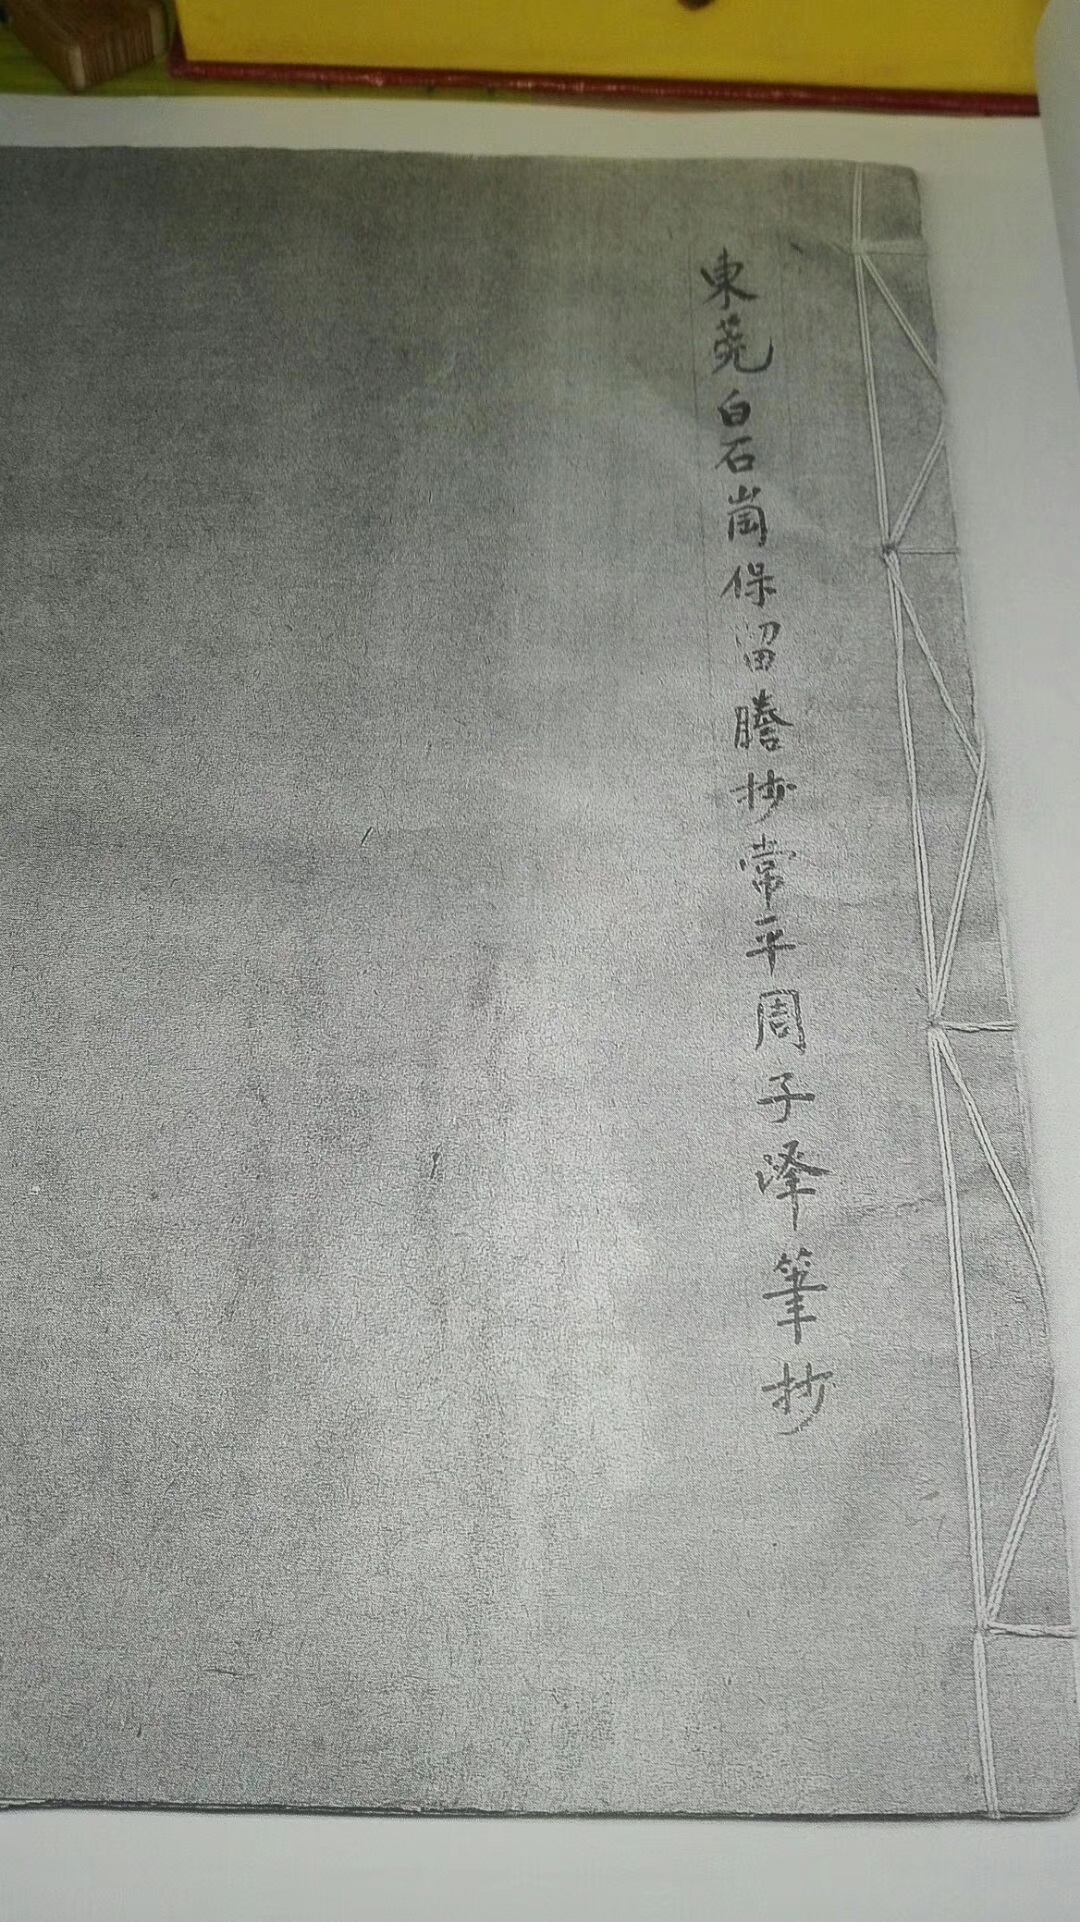 東莞白石崗保留謄抄常平周子泽筆抄